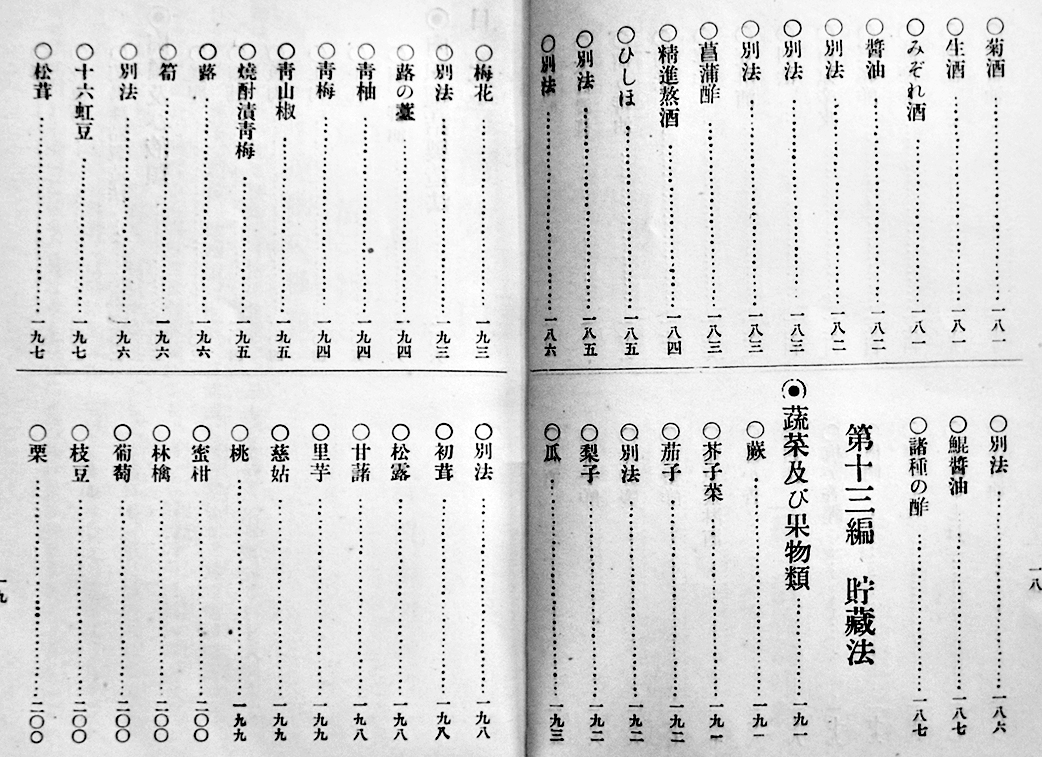 ○菊酒…………一八一
○生酒…………一八一
○みぞれ酒…………一八一
○醬油…………一八二
○別法…………一八二
○別法…………一八三
○別法…………一八三
○菖蒲酢…………一八三
○精進熬酒…………一八四
○ひしほ…………一八五
○別法…………一八五
○別法…………一八六
○別法…………一八六
○鯤醬油…………一八七
○諸種の酢…………一八七
第十三編 貯藏法
◉蔬菜及び果物類…………一九一
○蕨…………一九一
○芥子菜…………一九一
○茄子…………一九二
○別法…………一九二
○梨子…………一九二
○瓜…………一九三
一八
○梅花…………一九三
○別法…………一九三
○蕗の薹…………一九四
○青柚…………一九四
○青梅…………一九四
○青山椒…………一九五
○燒酎漬青梅…………一九五
○蕗…………一九六
○筍…………一九六
○別法…………一九六
○十六虹豆…………一九七
○松茸…………一九七
○別法…………一九八
○初茸…………一九八
○松露…………一九八
○甘藷…………一九八
○里芋…………一九九
○慈姑…………一九九
○桃…………一九九
○蜜柑…………二〇〇
○林檎…………二〇〇
○葡萄…………二〇〇
○枝豆…………二〇〇
○栗…………二〇〇
一九